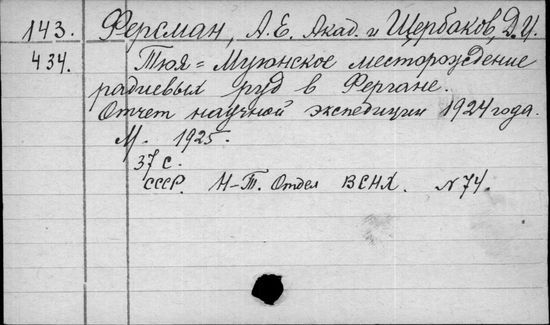 143. Ферсман, А.Е. Акад. и Щербаков Д.И.
434. Тюя=Муюнское месторождение
радиевых руд в Фергане.
Отчет научной экспедиции 1924 года.
М. 1925.
37 с.
СССР. Н-Т. Отдел ВСНХ. № 74.